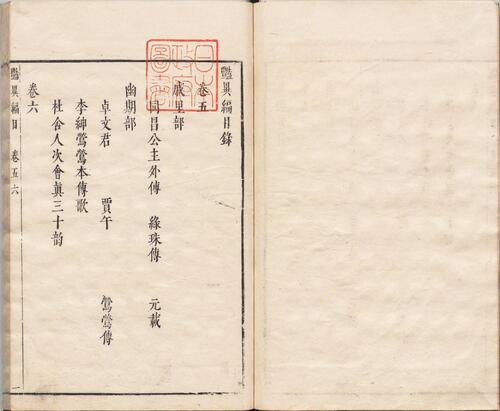 豔異編目錄
卷五
戚里部
同昌公主外傳 綠珠傳 元載
幽期部
卓文君 賈午 鶯鶯傳
李紳鶯鶯本傳歌
杜舍人次會真三十韵
卷六
豔異編目 卷五六 一
日本政府圖書